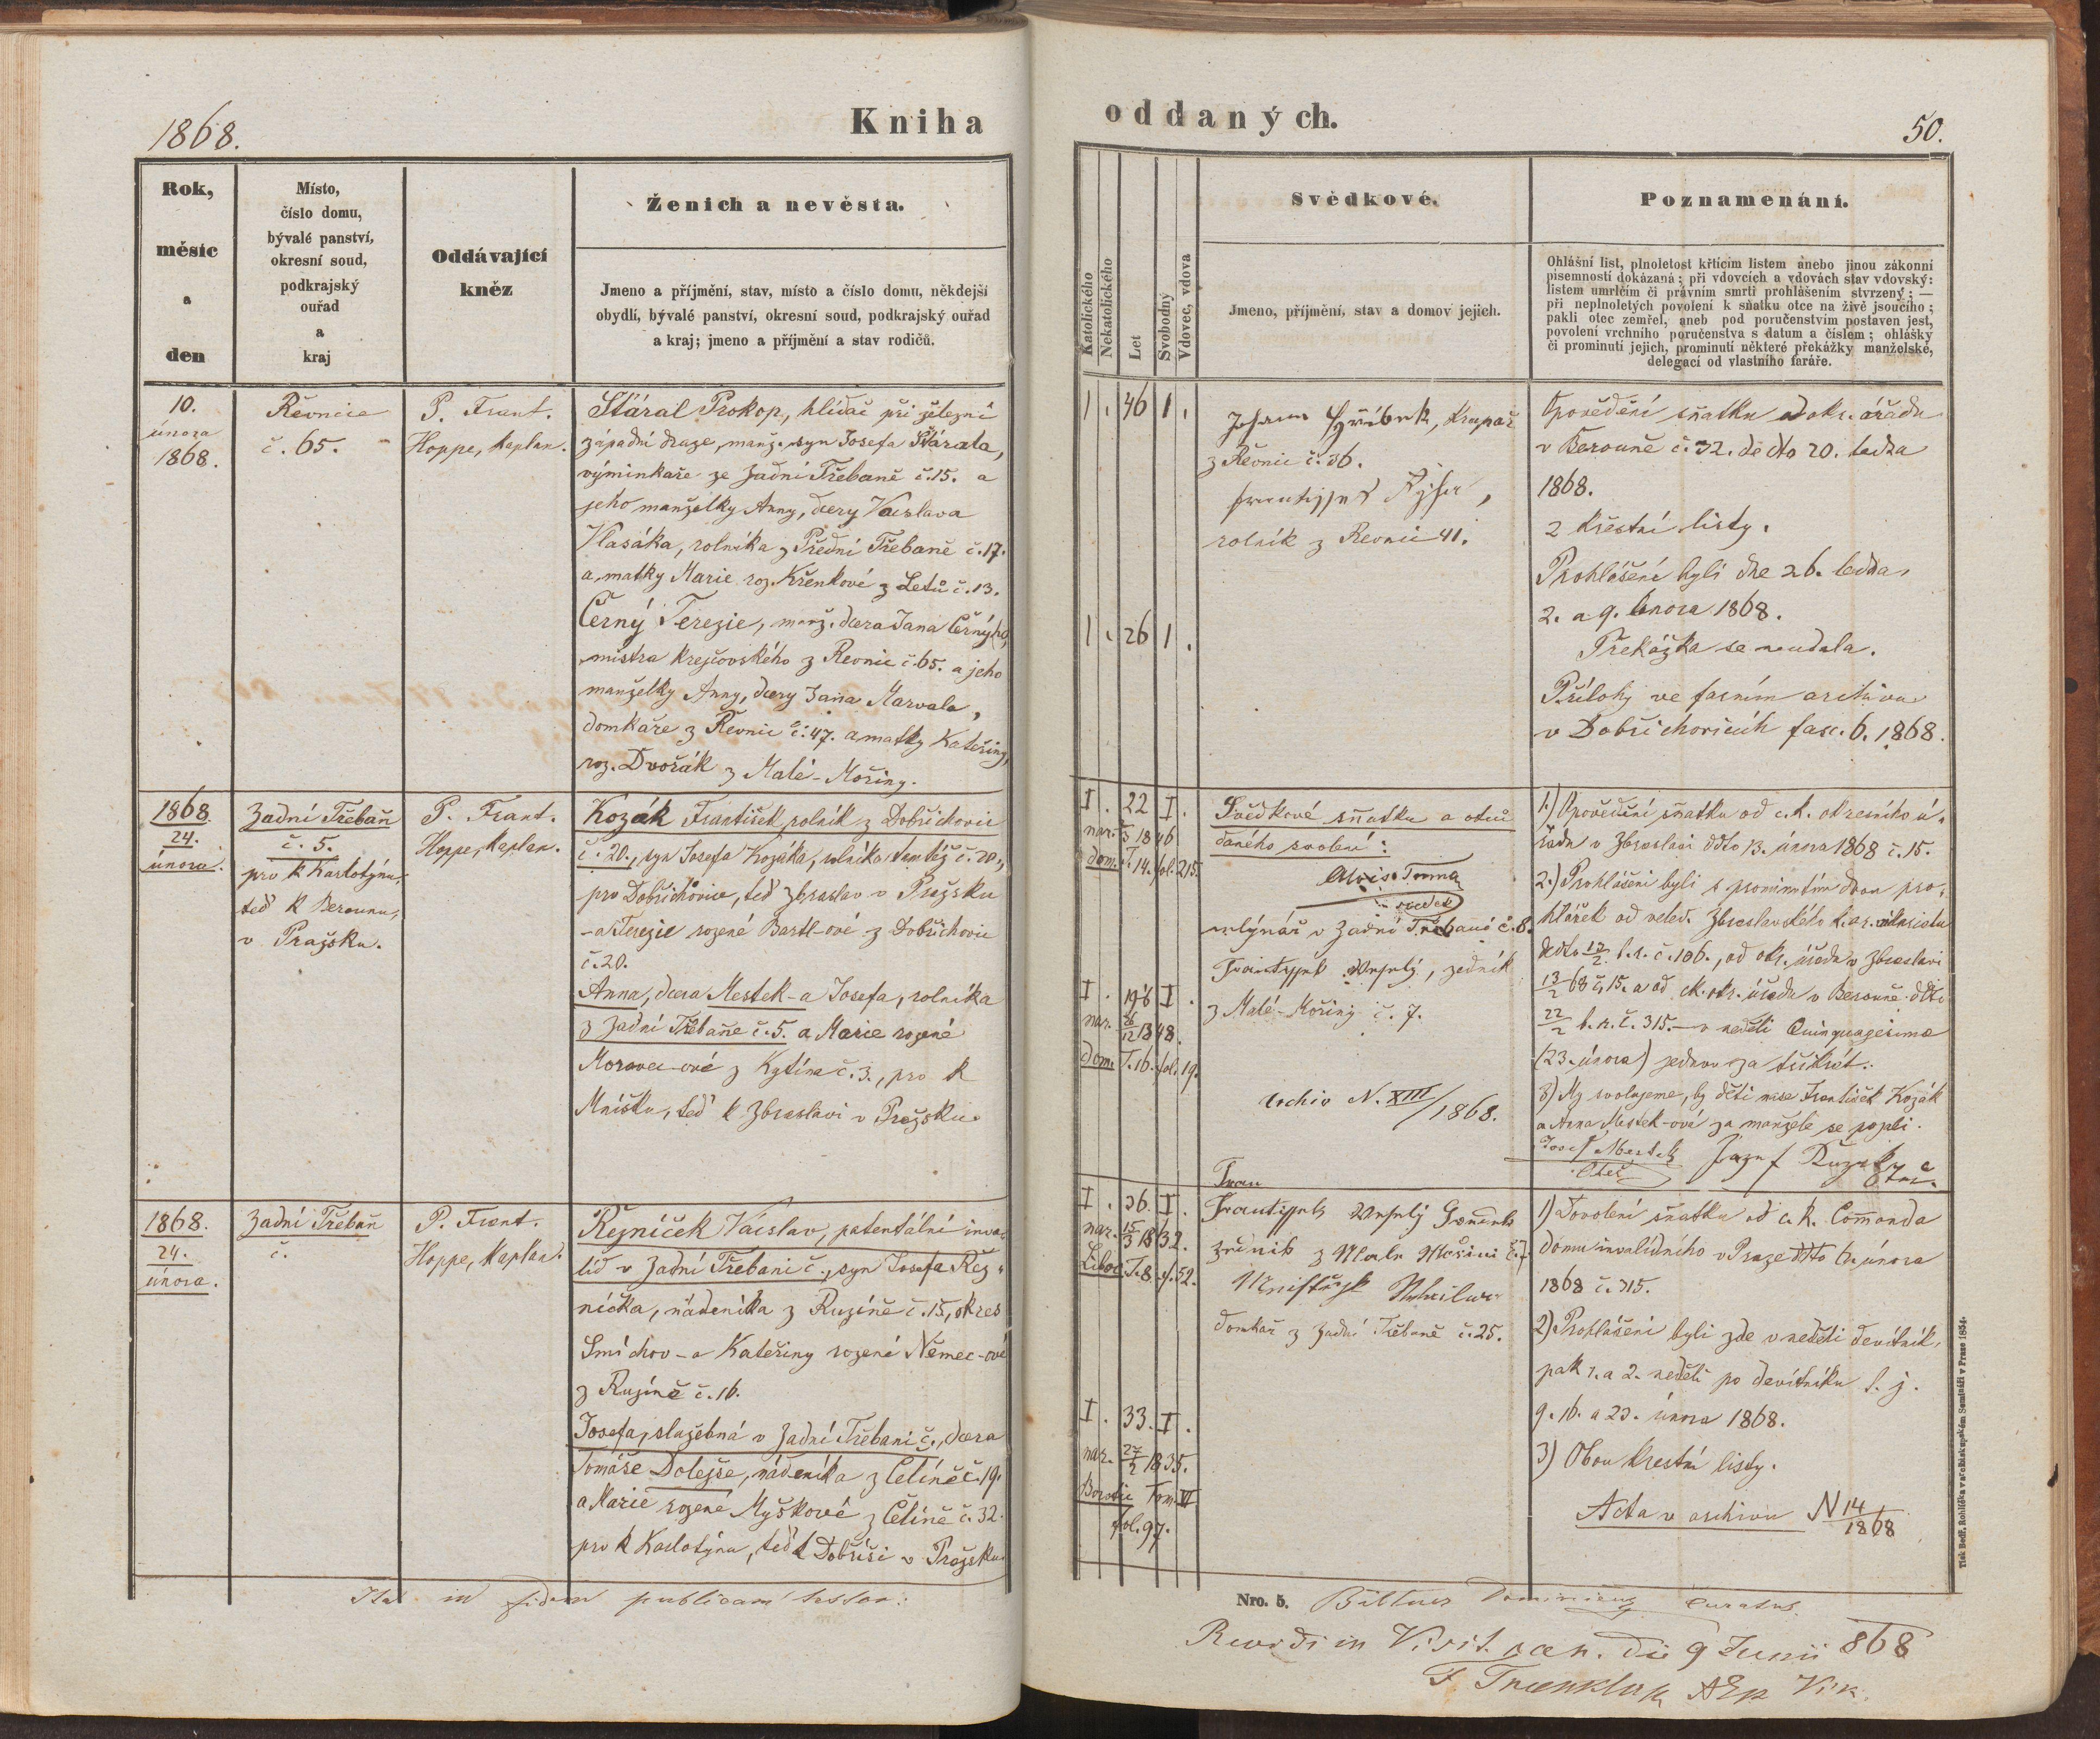 1868.
Kniha
Rok,
měsíc
a
den
Místo,
číslo domu,
bývalé panství,
okresní soud,
podkrajský
ouřad
a
kraj
Oddávající
kněz
Ženich a nevěsta.
Jmeno a příjmění, stav, místo a číslo domu, někdejší
obydlí, bývalé panství, okresní soud, podkrajský ouřad
a kraj; jmeno a příjmění a stav rodičů.
10.
února
1868.
Řevnice
č. 65.
P. Frant.
Hoppe, kaplan.
Stáral Prokop, hlídač při železní
západní draze, manž. syn Josefa Stárala,
výminkaře ze Zadní Třebaně č. 15. a
jeho manželky Anny, dcery Václava
Vlasáka, rolníka z Přední Třebaně č. 17.
a matky Marie roz. Křenkové z Letů č. 13.
Černý Terezie, manž. dcera Jana Černýho,
mistra krejčovského z Řevnic č. 65. a jeho
manželky Anny, dcery Jana Marvala,
domkáře z Řevnic č. 47. a matky Kateřiny,
roz. Dvořák z Malé-Mořiny.
1868
24.
února.
Zadní Třebáň
č. 5.
pro k Karlotýnu,
teď k Berounu,
v Pražsku.
P. Frant.
Hoppe, kaplan.
Kozák František, rolník z Dobřichovic
č. 20., syn Josefa Kozáka, rolníka tamtéž č. 20.,
pro Dobřichovice, teď Zbraslav v Pražsku
- a Terezie rozené Bartl-ové z Dobřichovic
č. 20.
Anna, dcera Mestek-a Josefa, rolníka
z Zadní Třebaně č. 5. a Marie rozené
Moravec-ové z Kytína č. 3., pro k
Mníšku, teď k Zbraslavi v Pražsku.
1868.
24.
února.
Zadní Třebáň
č.
P. Frant.
Hoppe, kaplan.
Řezníček Václav, patentální inva-
lid v Zadní Třebani č., syn Josefa Řez-
níčka, nádeníka z Ruzíně č. 15, okres
Smíchov - a Kateřiny rozené Němec-ové
z Ruzíně č. 16.
Josefa, služebná v Zadní Třebani č., dcera
Tomáše Dolejše, nádeníka z Čelíně č. 19.
a Marie rozené Myškové z Čelíně č. 32.
pro k Karlotýnu, teď k Dobříši v Pražsku.
Ita in fidem publicam testor:
oddaných.
50.
Katolického
Nekatolického
Let
Svobodný
Vdovec, vdova
Svědkové.
Jmeno, příjmění, stav a domov jejich.
Poznamenání.
Ohlášní list, plnoletost křtícím listem anebo jinou zákonní
písemností dokázaná; při vdovcích a vdovách stav vdovský:
listem umrlčím či právním smrti prohlášením stvrzený; —
při neplnoletých povolení k sňatku otce na živě jsoucího;
pakli otec zemřel, aneb pod poručenstvím postaven jest,
povolení vrchního poručenstva s datum a číslem; ohlášky
či prominutí jejich, prominutí některé překážky manželské,
delegací od vlastního faráře.
1. 46 1.
z Řevnic č. 36.
rolník z Řevnic 41.
1. 26 1.
Opovědění sňatku od okr. ouřadu
v Berouně č. 32. de dto 20. ledna
1868.
2 křestní listy.
Prohlášení byli dne 26. ledna,
2. a 9. února 1868.
Překážka se neudala.
Přílohy ve farním archivu
v Dobřichovicích fasc. 6. 1868.
I. 22 I.
nar. 1846
dom. T. 14. fol. 215.
Svědkové sňatku a otců
daného svolení:
Alois Tomna
svědek
mlýnář v Zadní Třebani č. 8.
Frantisek Weselý, zedník
z Malé-Mořiny č. 7.
I. 19 I.
nar. 26/12 1848.
dom. T. 16. fol. 19.
Archiv N. XIII/1868.
1.) Opovědění sňatku od c. k. okresního ú-
řadu v Zbraslavi ddto 13. února 1868 č. 15.
2.) Prohlášeni byli s prominutím dvou pro-
hlášek od veled. Zbraslavského k. a. vikariatu
13/2 68 č. 15. a od ck. okr. úřadu v Berouně ddto
22/2 l. r. č. 315. — v neděli Quinquagesima
(23. února) jednou za třikrát.
3) My svolujeme, by děti naše František Kozák
a Anna Mestek-ová za manžele se pojali.
Josef Mestek
otec
Fran
I. 36. I.
nar. 15/3 1832.
Liboc T. 8. f. 52.
Frantissek Weselý
zedník z Male Mořini č. 7
domkář z Zadní Třebaně č. 25.
I. 33. I.
nar. 27/2 1835.
Borotic Tom. VI
fol. 97.
1) Dovolení sňatku od c. k. Commanda
domu invalidního v Praze ddto 6. února
1868 č. 315.
2) Prohlášeni byli zde v neděli devítník,
pak 1. a 2. neděli po devítníku t. j.
9. 16. a 23. února 1868.
3) Obou křestní listy.
Acta v archivu N 14/1868
Nro. 5.
Bittner Dominicus curatus.
in Visit. can. die 9 Junii 868
Tisk Bedř. Rohlíčka v arcibiskupském Semináři v Praze 1854.